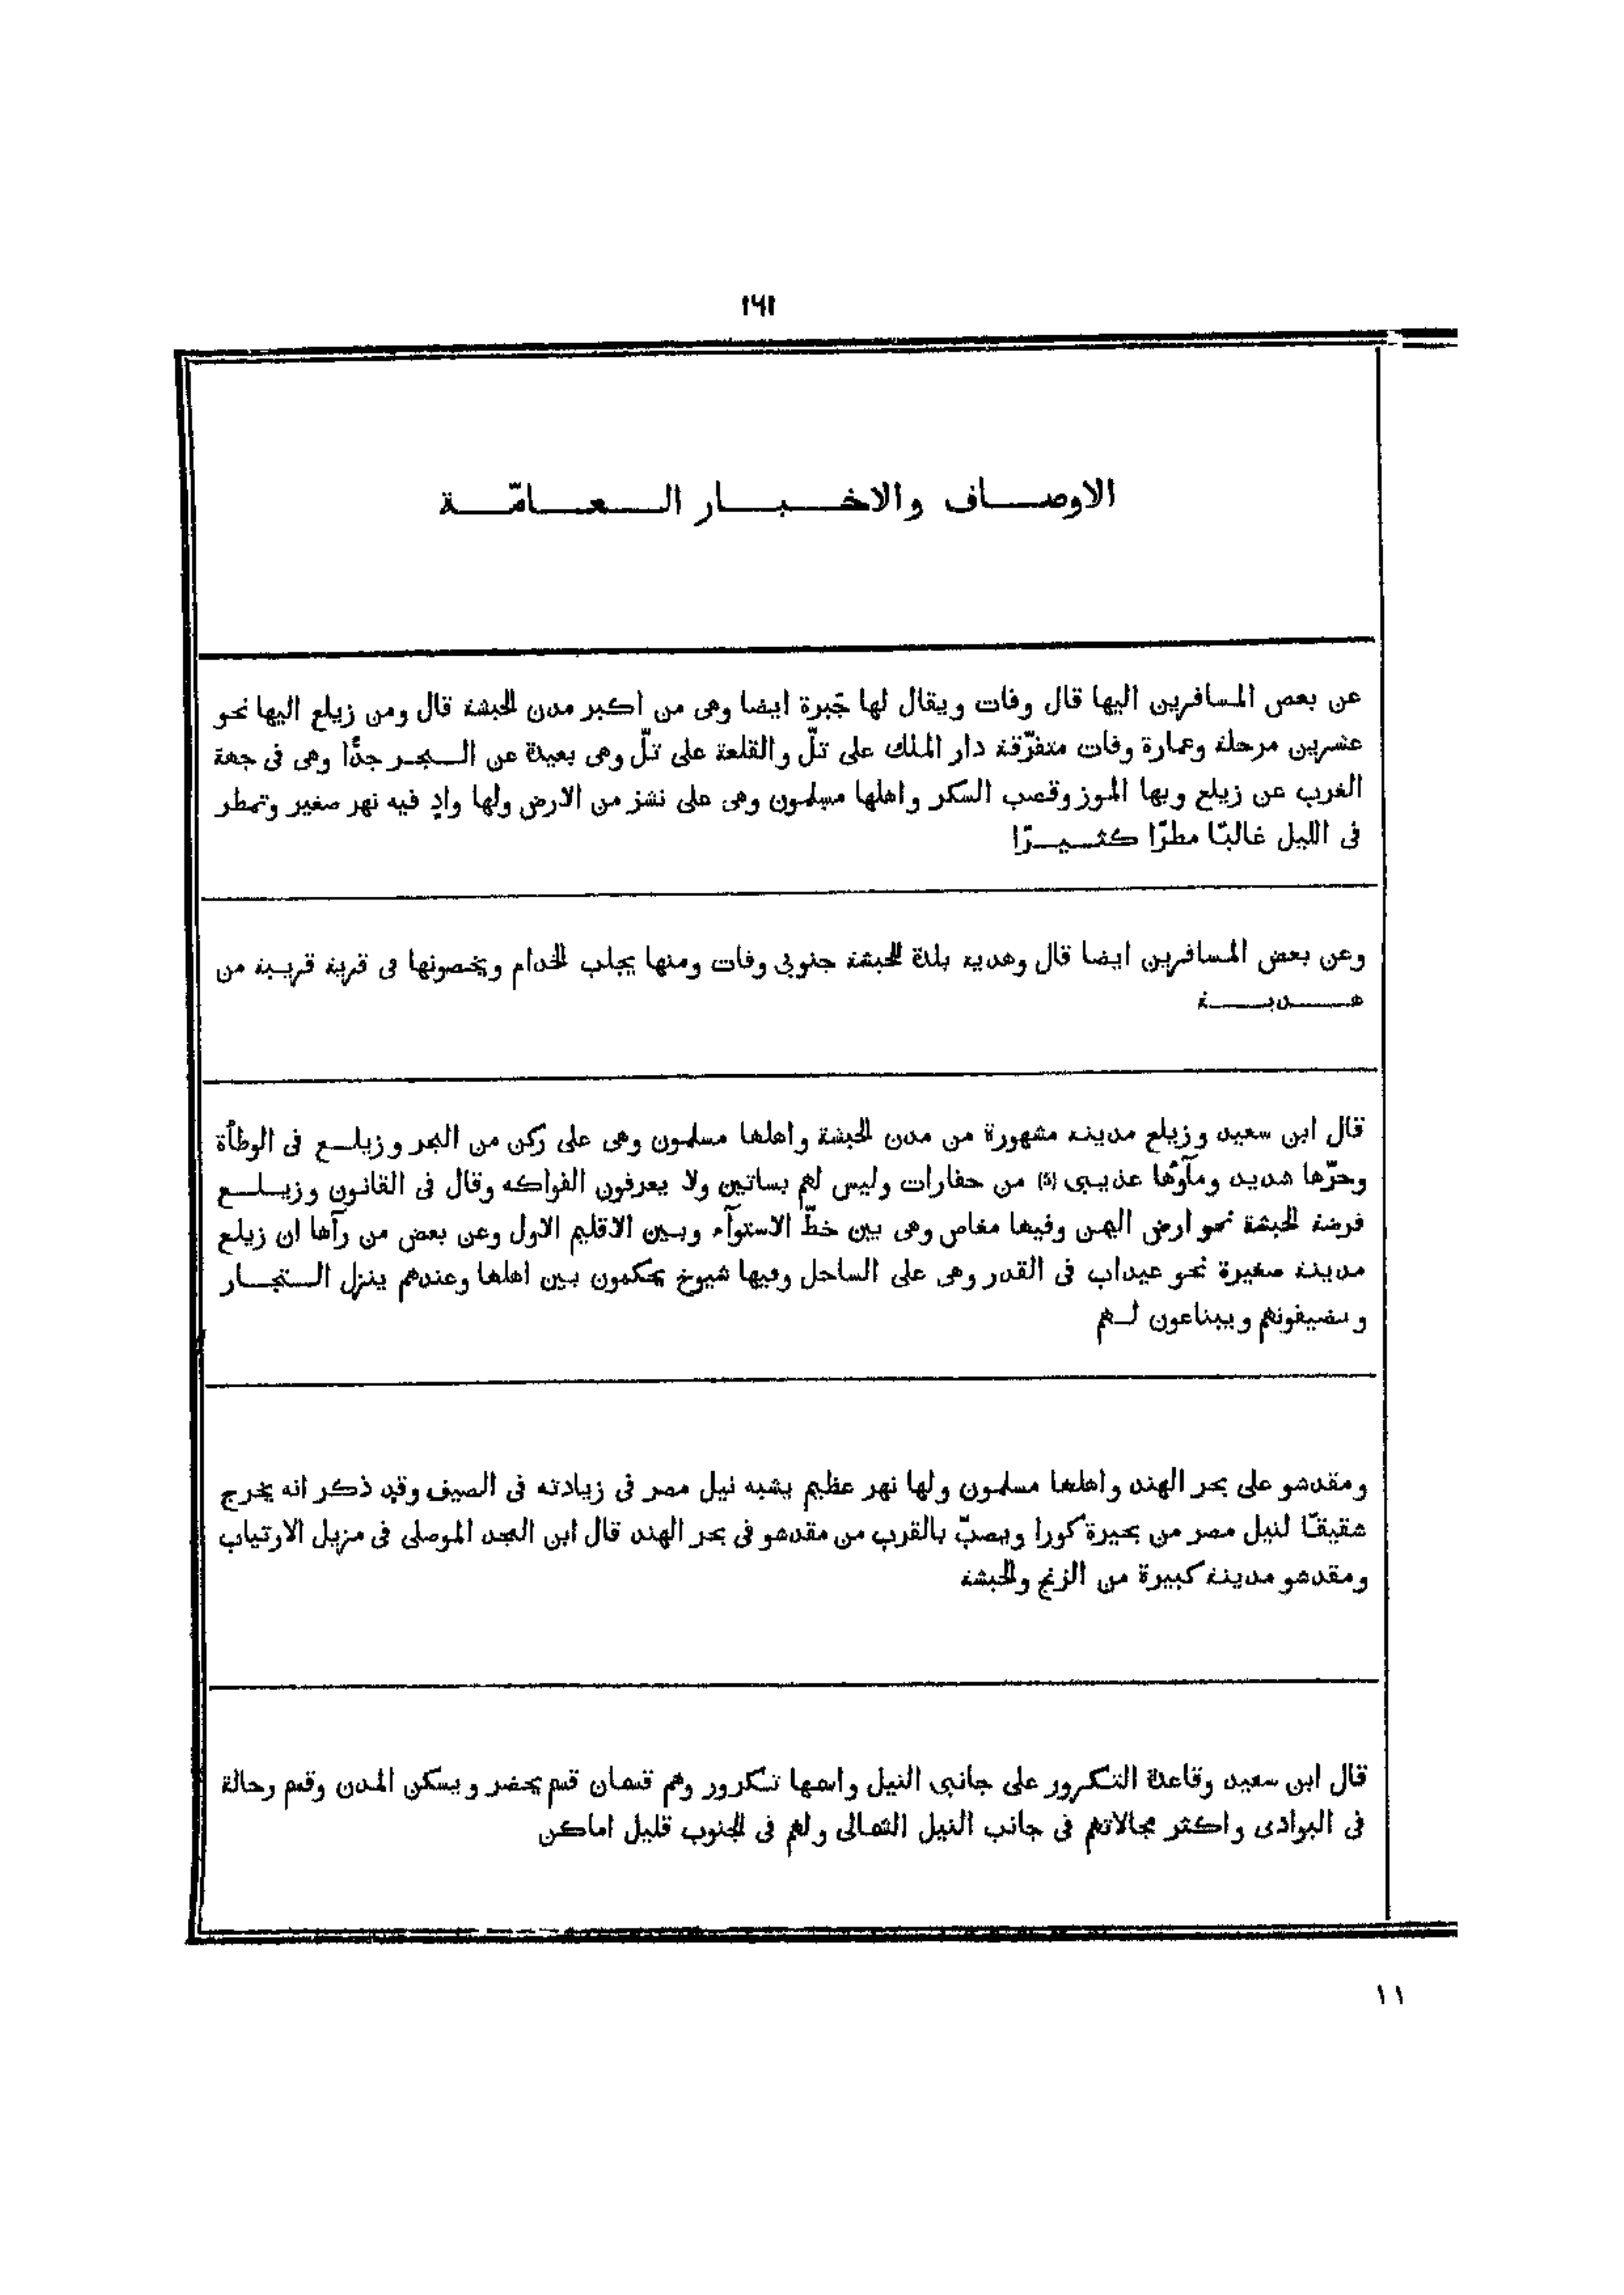 ١٦١
الاوصاف والاخبار العامّة
عن بعض المسافرين اليها قال وفات ويقال لها جَبرة ايضا وهى من اكبر مدن الحبشة قال ومن زيلع اليها نحو
عشرين مرحلة وعمارة وفات متفرّقة دار الملك على تلّ والقلعة على تلّ وهى بعيدة عن البحر جدًّا وهى فى جهة
الغرب عن زيلع وبها الموز وقصب السكر واهلها مسلمون وهى على نشز من الارض ولها وادٍ فيه نهر صغير وتمطر
فى الليل غالبًا مطرًا كثيرًا
وعن بعض المسافرين ايضا قال وهدية بلدة للحبشة جنوبى وفات ومنها يجلب الخدام ويخصونها فى قرية قريبة من
هدية
قال ابن سعيد وزيلع مدينة مشهورة من مدن الحبشة واهلها مسلمون وهى على ركن من البحر وزيلع فى الوطأة
وحرّها شديد ومآؤها عذيبى (5) من حفارات وليس لهم بساتين ولا يعرفون الفواكه وقال فى القانون وزيلع
فرضة الحبشة نحو ارض اليمن وفيها مغاص وهى بين خطّ الاستوآء وبين الاقليم الاول وعن بعض من رآها ان زيلع
مدينة صغيرة نحو عيداب فى القدر وهى على الساحل وفيها شيوخ يحكمون بين اهلها وعندهم ينزل التجار
وبضيفونهم ويبتاعون لهم
ومقدشو على بحر الهند واهلها مسلمون ولها نهر عظيم يشبه نيل مصر فى زيادته فى الصيف وقد ذكر انه يخرج
شقيقًا لنيل مصر من بحيرة كورا ويصبّ بالقرب من مقدشو فى بحر الهند قال ابن المجد الموصلى فى مزيل الارتياب
ومقدشو مدينة كبيرة من الزنج والحبشة
قال ابن سعيد وقاعدة التكرور على جانبى النيل واسمها تكرور وهم قسمان قسم يحضر ويسكن المدن وقسم رحالة
فى البوادى واكثر مجالاتهم فى جانب النيل الشمالى ولهم فى الجنوب قليل اماكن
١١